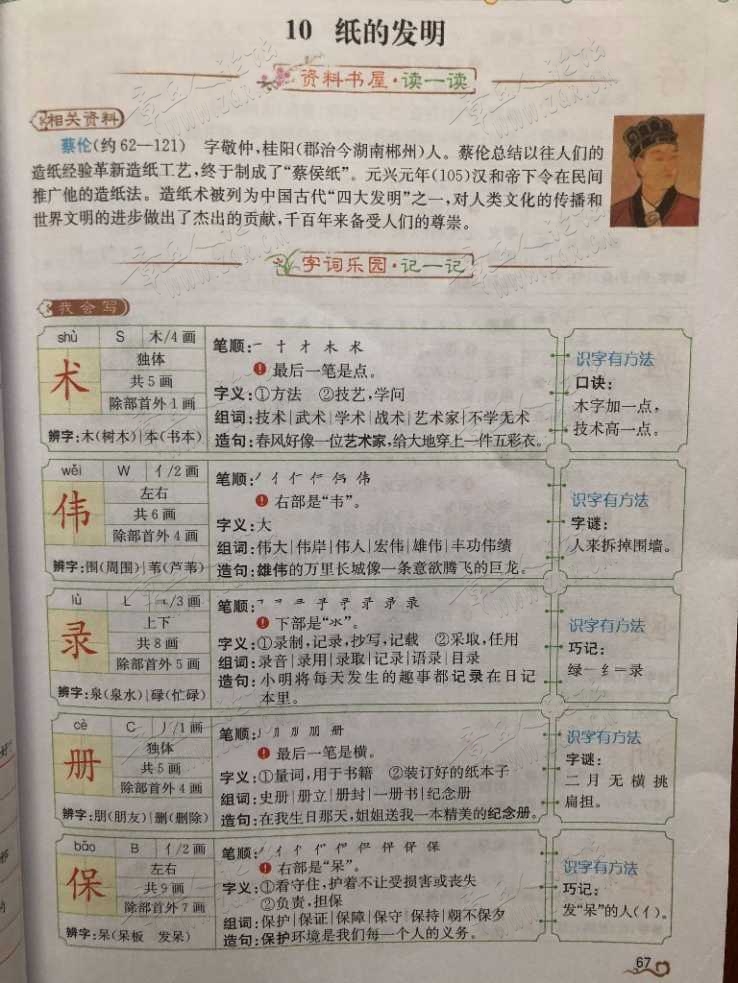 10 纸的发明
资料书屋·读一读
相关资料
蔡伦(约62—121) 字敬仲,桂阳(郡治今湖南郴州)人。蔡伦总结以往人们的
造纸经验革新造纸工艺,终于制成了“蔡侯纸”。元兴元年(105)汉和帝下令在民间
推广他的造纸法。造纸术被列为中国古代“四大发明”之一,对人类文化的传播和
世界文明的进步做出了杰出的贡献,千百年来备受人们的尊崇。
字词乐园·记一记
我会写
shù S 木/4画
术
独体
共5画
除部首外1画
辨字:木(树木)|本(书本)
笔顺:一 十 才 木 术
最后一笔是点。
字义:①方法 ②技艺,学问
组词:技术|武术|学术|战术|艺术家|不学无术
造句:春风好像一位艺术家,给大地穿上一件五彩衣。
识字有方法
口诀:
木字加一点,
技术高一点。
wěi W 亻/2画
伟
左右
共6画
除部首外4画
辨字:围(周围)|苇(芦苇)
笔顺:
右部是“韦”。
字义:大
组词:伟大|伟岸|伟人|宏伟|雄伟|丰功伟绩
造句:雄伟的万里长城像一条意欲腾飞的巨龙。
识字有方法
字谜:
人来拆掉围墙。
lù L 彐/3画
录
上下
共8画
除部首外5画
辨字:泉(泉水)|碌(忙碌)
笔顺:
下部是“氺”。
字义:①录制,记录,抄写,记载 ②采取,任用
组词:录音|录用|录取|记录|语录|目录
造句:小明将每天发生的趣事都记录在日记
本里。
识字有方法
巧记:
绿－纟＝录
cè C 丿/1画
册
独体
共5画
除部首外4画
辨字:朋(朋友)|删(删除)
笔顺:
最后一笔是横。
字义:①量词,用于书籍 ②装订好的纸本子
组词:史册|册立|册封|一册书|纪念册
造句:在我生日那天,姐姐送我一本精美的纪念册。
识字有方法
字谜:
二月无横挑
扁担。
bǎo B 亻/2画
保
左右
共9画
除部首外7画
辨字:呆(呆板 发呆)
笔顺:
右部是“呆”。
字义:①看守住,护着不让受损害或丧失
②负责,担保
组词:保护|保证|保障|保守|保持|朝不保夕
造句:保护环境是我们每一个人的义务。
识字有方法
巧记:
发“呆”的人(亻)。
67